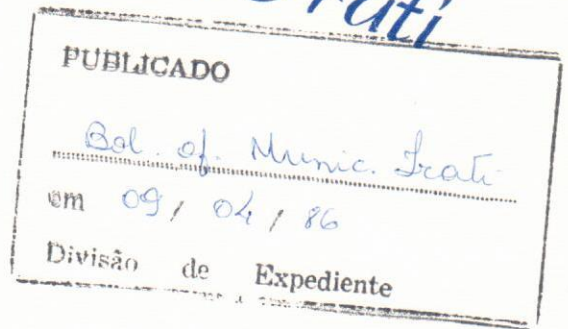 Irati
PUBLICADO
Bol. of. Munic. Irati
em 09 / 04 / 86
Divisão de Expediente